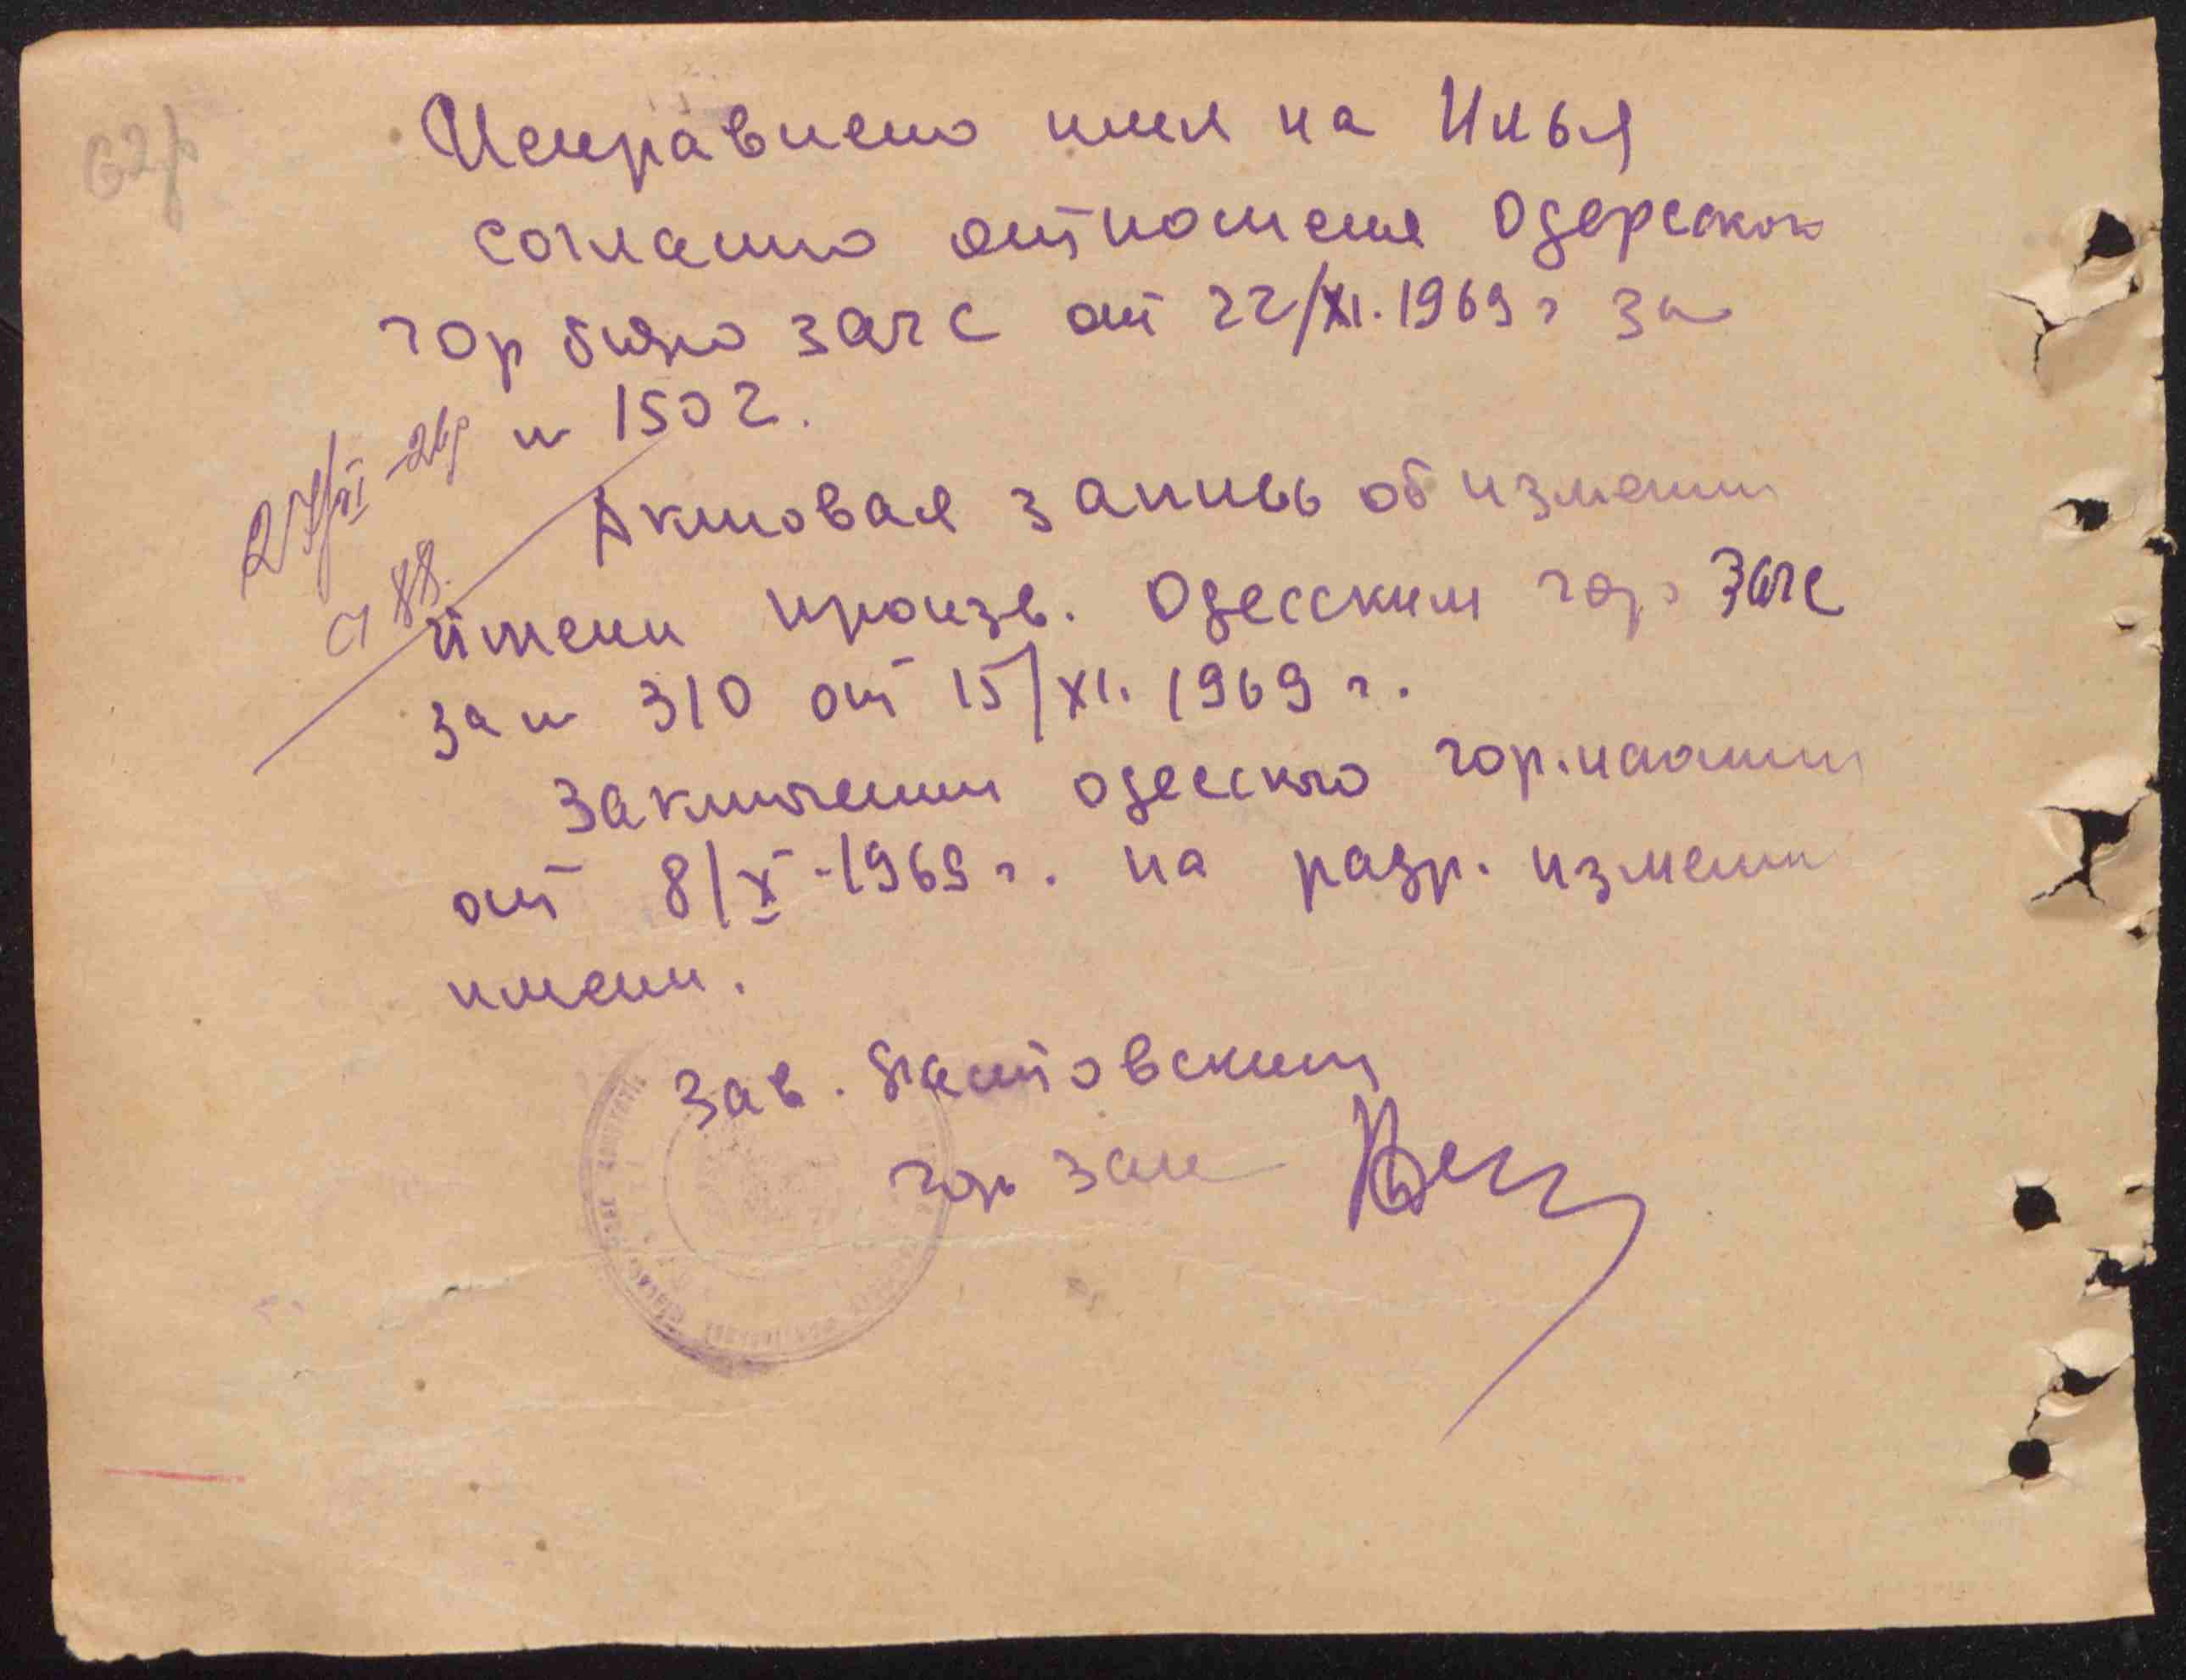 Исправлено имя на Илья
согласно отношения Одесского
гор бюро загс от 22/XI.1969 г за
н 1502.
Актовая запись об измении
имени произв. Одесским гор Загс
за н 310 от 15/XI. 1969 г.
Заключении одесского гор.милиции
от 8/X-1969 г. на разр. измении
имени.
Зав.
гор загс